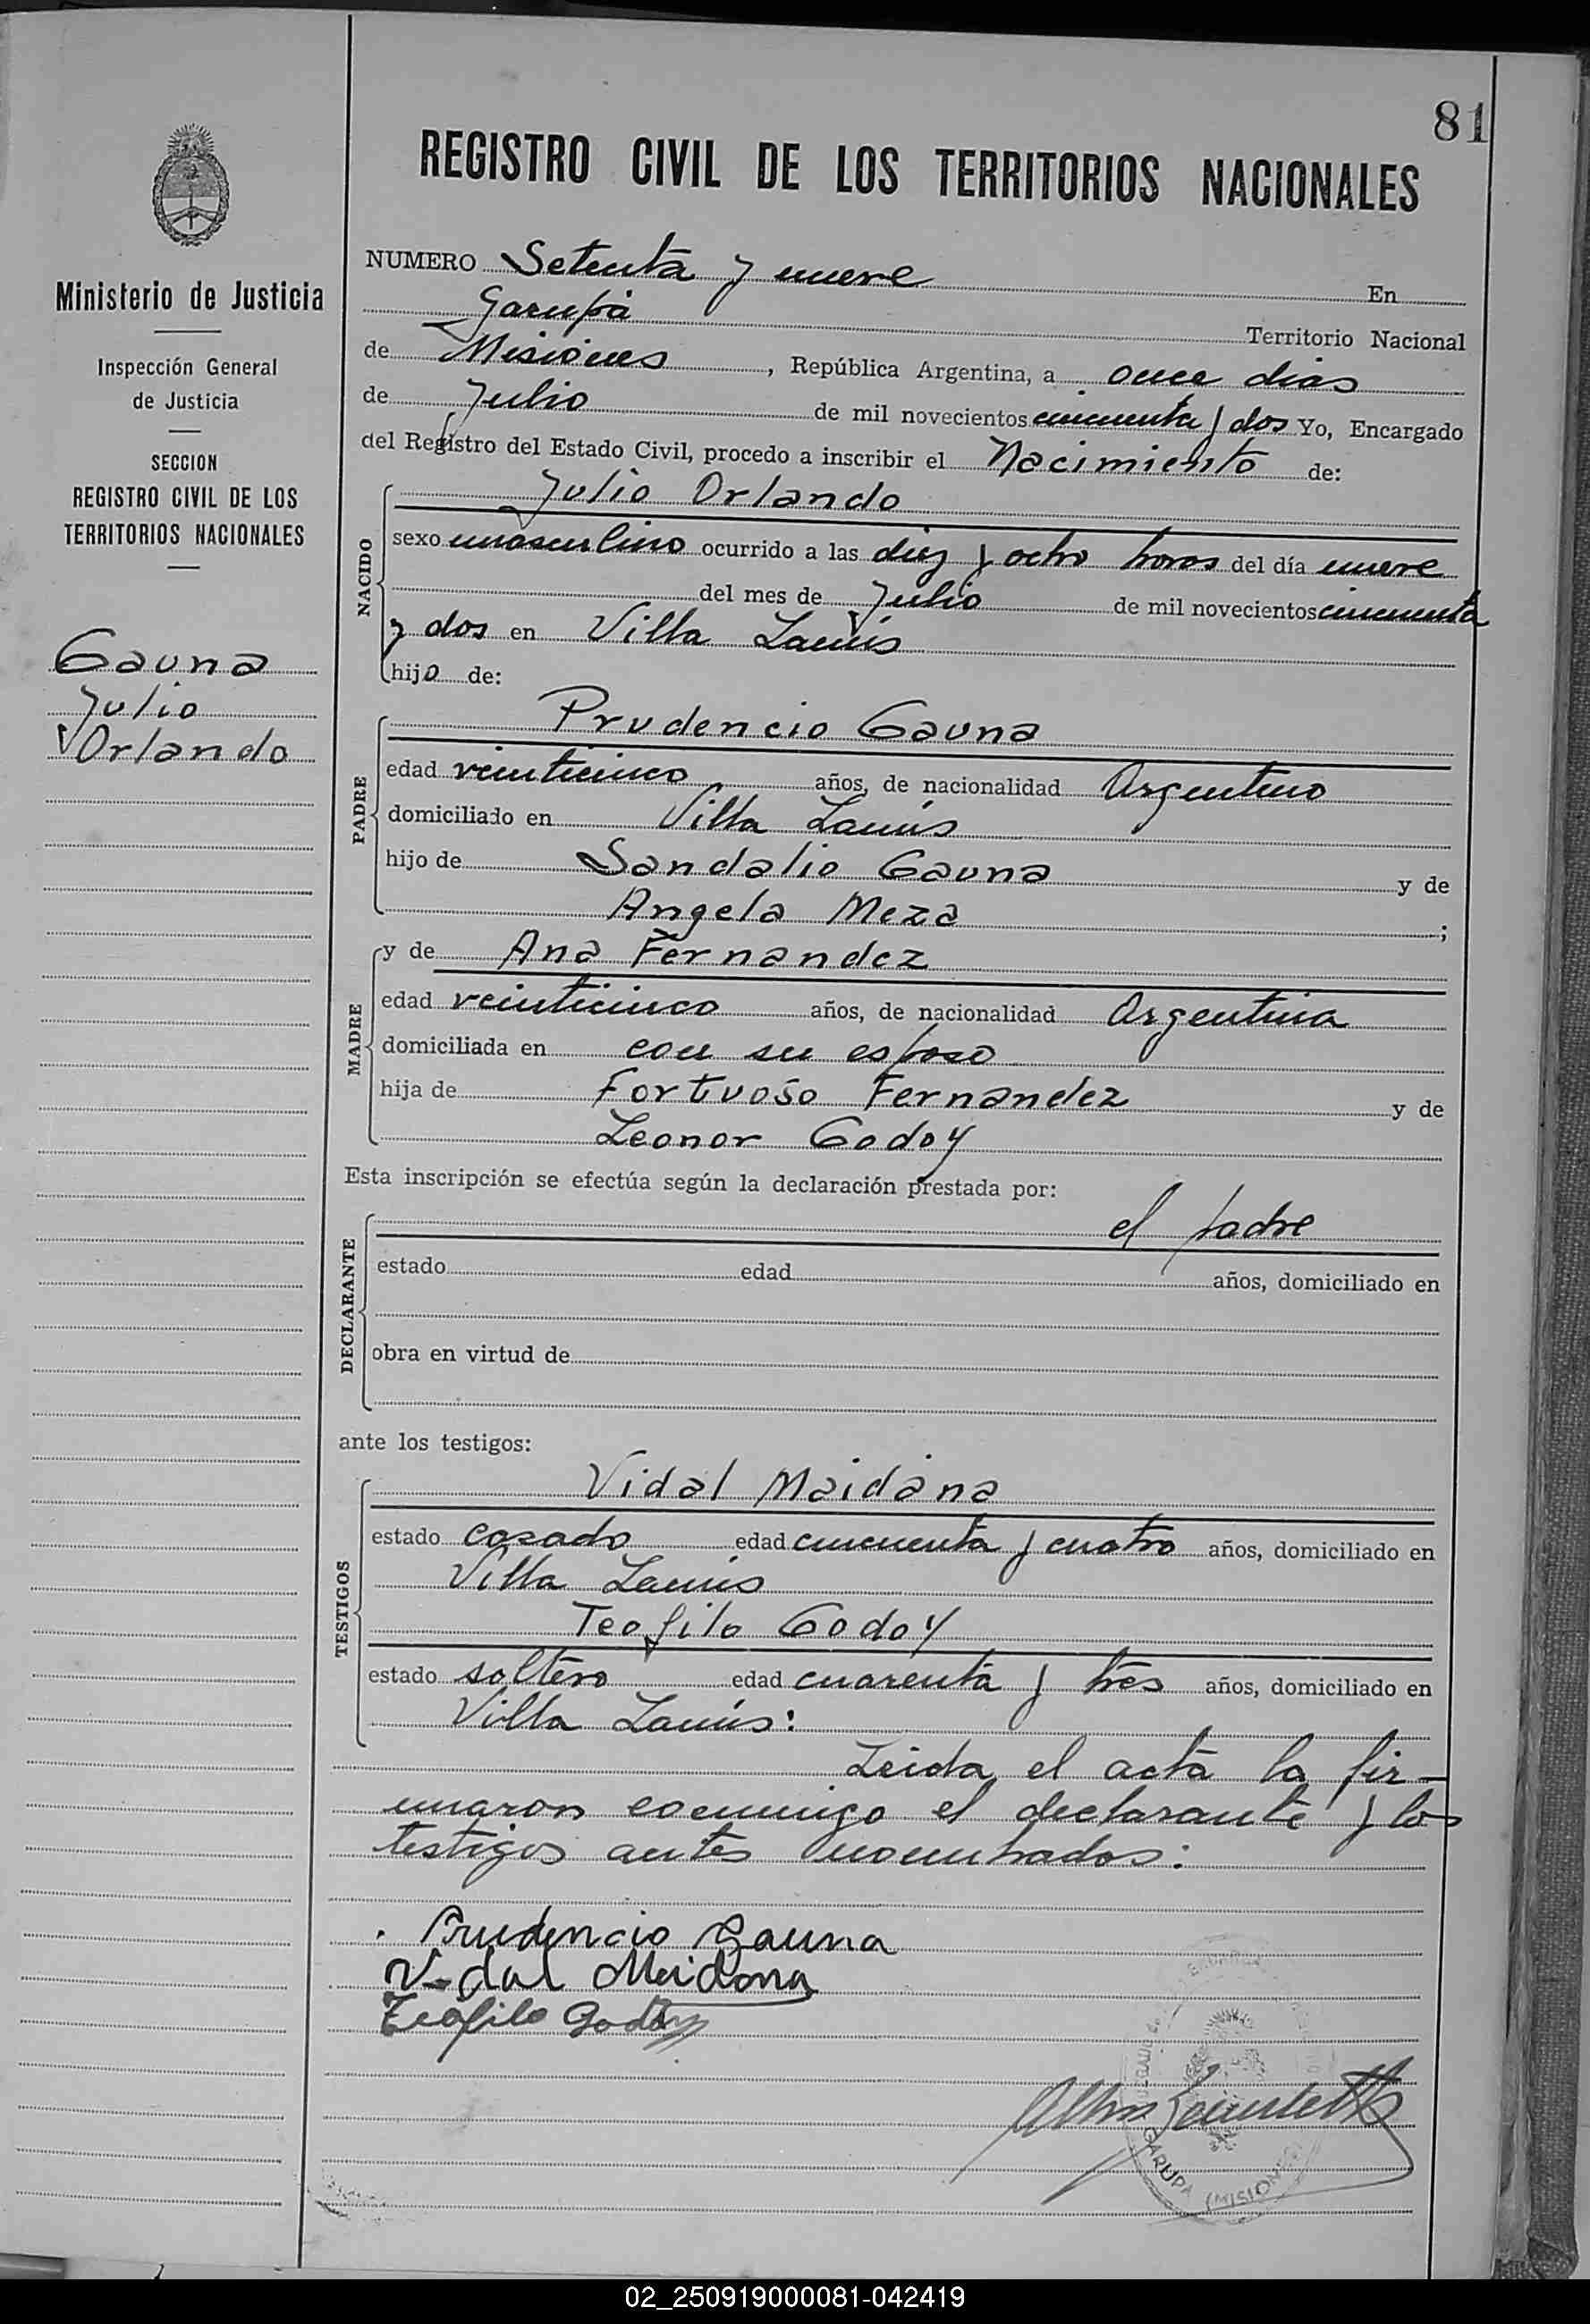 81
REGISTRO CIVIL DE LOS TERRITORIOS NACIONALES
Ministerio de Justicia
Inspección General
de Justicia
SECCION
REGISTRO CIVIL DE LOS
TERRITORIOS NACIONALES
Gauna
Julio
Orlando
NUMERO Setenta y nueve En
Garupá Territorio Nacional
de Misiones, República Argentina, a once dias
de Julio de mil novecientos cincuenta y dos Yo, Encargado
del Registro del Estado Civil, procedo a inscribir el Nacimiento de:
NACIDO
Julio Orlando
sexo masculino ocurrido a las diez y ocho horas del día nueve
del mes de Julio de mil novecientos cincuenta
y dos en Villa Lanús
hijo de:
PADRE
Prudencio Gauna
edad veinticinco años, de nacionalidad Argentino
domiciliado en Villa Lanús
hijo de Sandalio Gauna y de
Angela Meza;
MADRE
y de Ana Fernandez
edad veinticinco años, de nacionalidad Argentina
domiciliada en con su esposo
hija de Fortuoso Fernandez y de
Leonor Godoy
Esta inscripción se efectúa según la declaración prestada por:
DECLARANTE
el padre
estado edad años, domiciliado en
obra en virtud de
ante los testigos:
TESTIGOS
Vidal Maidana
estado casado edad cincuenta y cuatro años, domiciliado en
Villa Lanús
Teofilo Godoy
estado soltero edad cuarenta y tres años, domiciliado en
Villa Lanús:
Leida el acta la fir-
maron conmigo el declarante y los
testigos antes nombrados:
Prudencio Gauna
Vidal Maidana
Teófilo Godoy
GARUPA (MISIONES)
02_250919000081-042419